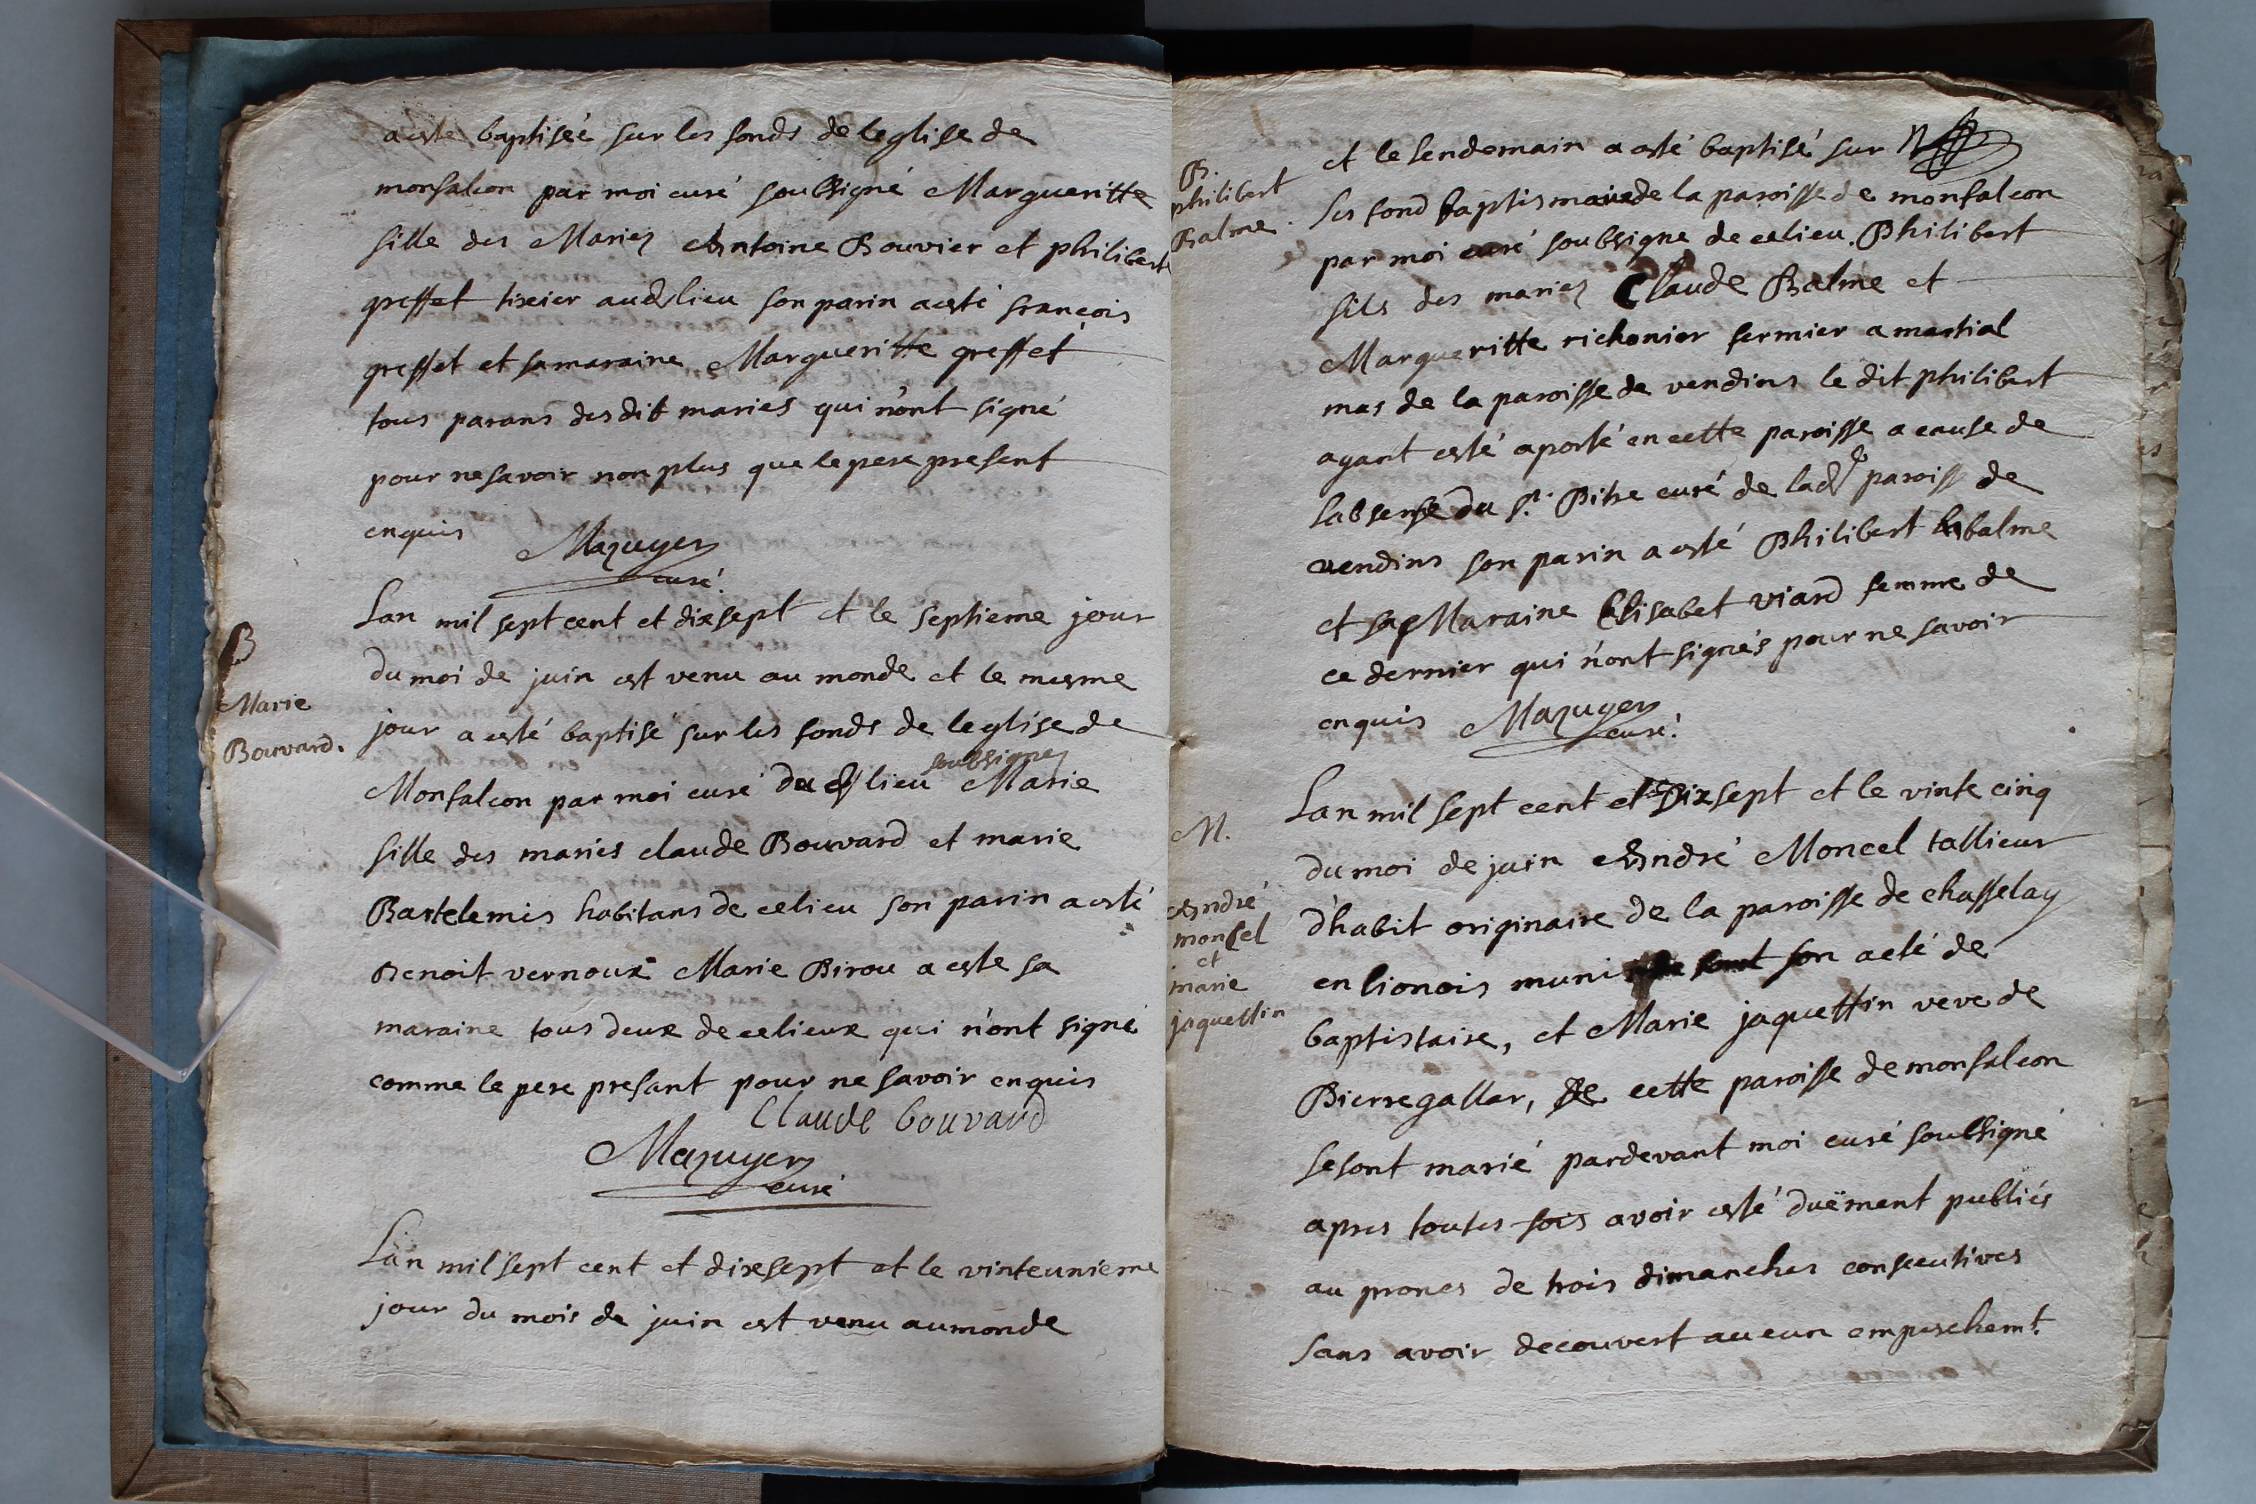 a este baptiseé sur les fonds de leglise de
monfalcon par moi curé soubsigné Margueritte
fille des Mariez Antoine Bouvier et philiberte
greffet tixier aud lieu son parin a esté françois
greffet et sa maraine Margueritte greffet
tous parans desdit mariés qui n'ont signé
pour ne savoir non plus que le pere present
enquis
Mazuyer
curé
B
Marie
Bouvard.
Lan mil sept cent et dixsept et le septieme jour
du moi de juin est venu au monde et le mesme
jour a esté baptisé sur les fonds de leglise de
soubsignez
Monfalcon par moi curé du lieu Marie
fille des mariés claude Bouvard et marie
Bartelemis habitans de celieu son parin a esté
Benoit vernoux Marie Birou a este sa
maraine tous deux de celieux qui n'ont signé
comme le pere presant pour ne savoir enquis
Claude bouvard
Mazuyer
curé
Lan mil sept cent et dixsept et le vinteunieme
jour du mois de juin est venu au monde
B.
philibert
Balme.
et le lendemain a esté baptisé sur
les fond baptismaux de la paroisse de monfalcon
par moi curé soubsigne de celieu. Philibert
fils des mariez Claude Balme et
Margueritte richonier fermier a martial
mas de la paroisse de vendins le dit philibert
ayant esté aporté en cette paroisse a cause de
labsense du sr. Pitre curé de lad paroiss de
vendins son parin a esté Philibert balme
et sa Maraine Elisabet viard femme de
ce dernier qui n'ont signés pour ne savoir
enquis
Mazuyer
curé.
M.
André
monsel
et
marie
jaquettin
Lan mil sept cent et Dixsept et le vinte cinq
du moi de juin André Moncel tallieur
d'habit originaire de la paroisse de chasselay
en lionois muni son acté de
baptistaire, et Marie jaquettin veve de
Pierre gallar, De cette paroisse de monfalcon
se sont marié pardevant moi curé soubsigné
apres toutes fois avoir esté duëment publiés
au prones de trois dimanches consecutives
sans avoir decouvert aucun empeschemt.